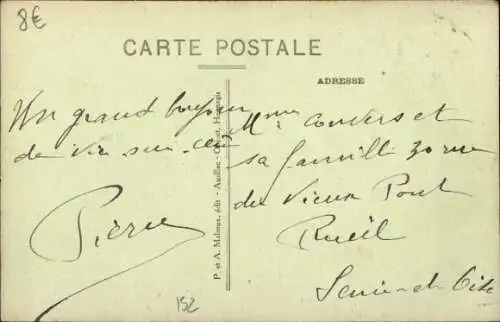 8€
CARTE POSTALE
ADRESSE
Un grand bonjour
de Vic sur
Pierre
P. et A. Malroux, édit - Aurillac
Mme Convers et
sa famill 30 rue
du Vieux Pont
Rueil
Seine et Oise
152